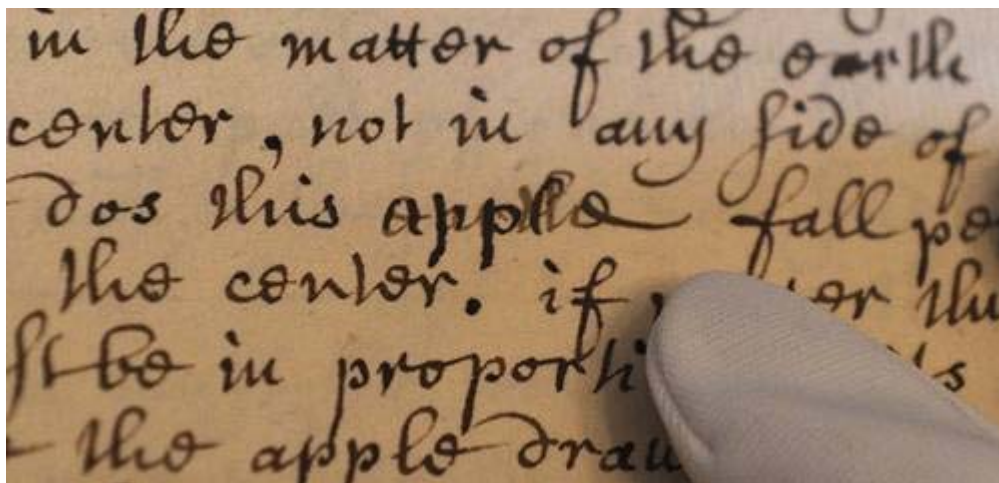 in the matter of the earth
center, not in any side of
dos this apple fall pe
the center. if er thu
st be in proporti s
the apple draw